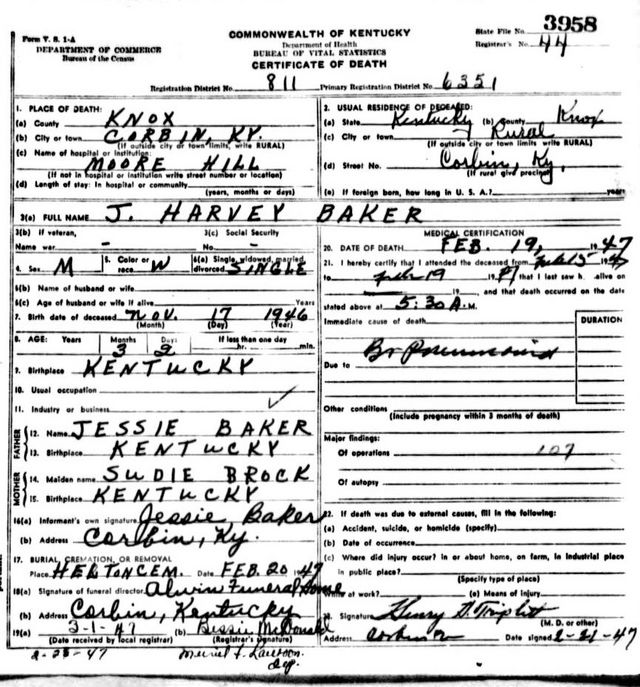 Form V. S. 1-A
DEPARTMENT OF COMMERCE
Bureau of the Census
COMMONWEALTH OF KENTUCKY
Department of Health
BUREAU OF VITAL STATISTICS
CERTIFICATE OF DEATH
State File No. 3958
Registrar's No. 44
Registration District No. 811 Primary Registration District No. 6351
1. PLACE OF DEATH:
(a) County KNOX
(b) City or town CORBIN, KY.
(If outside city or town limits, write RURAL)
(c) Name of hospital or institution:
MOORE HILL
(If not in hospital or institution write street number or location)
(d) Length of stay: In hospital or community
(years, months or days)
2. USUAL RESIDENCE OF DECEASED:
(a) State Kentucky (b) County Knox
(c) City or town Rural
(If outside city or town limits write RURAL)
(d) Street No. Corbin, Ky,
(If rural give precinct)
(e) If foreign born, how long in U. S. A.? years
3(a) FULL NAME J. HARVEY BAKER
3(b) If veteran,
Name war -
3(c) Social Security
No. -
4. Sex M
5. Color or
race W
6(a) Single, widowed, married,
divorced SINGLE
6(b) Name of husband or wife
6(c) Age of husband or wife if alive Years
7. Birth date of deceased NOV. 17 1946
(Month) (Day) (Year)
8. AGE: Years Months Days If less than one day
3 2 hr. min.
9. Birthplace KENTUCKY
10. Usual occupation
11. Industry or business
FATHER
12. Name JESSIE BAKER
13. Birthplace KENTUCKY
MOTHER
14. Maiden name SUDIE BROCK
15. Birthplace KENTUCKY
16(a) Informant's own signature Jessie Baker
(b) Address Corbin, Ky.
17. BURIAL, CREMATION, OR REMOVAL
Place HELTON CEM. Date FEB. 20 1947
18(a) Signature of funeral director Funeral Home
(b) Address Corbin, Kentucky
19(a) 3-1-47 (b) Bessie McDonald
(Date received by local registrar) (Registrar's signature)
MEDICAL CERTIFICATION
20. DATE OF DEATH FEB. 19, 1947
21. I hereby certify that I attended the deceased from 1947
to 19 that I last saw h alive on
19 , and that death occurred on the date
stated above at 5:30 A.M.
Immediate cause of death
DURATION
Due to
Other conditions
(Include pregnancy within 3 months of death)
Major findings:
Of operations 107
Of autopsy
22. If death was due to external causes, fill in the following:
(a) Accident, suicide, or homicide (specify)
(b) Date of occurrence
(c) Where did injury occur? in or about home, on farm, in industrial place
in public place?
(Specify type of place)
at work? (e) Means of injury
Signature Henry
(M. D. or other)
Address Date signed 2-21-47